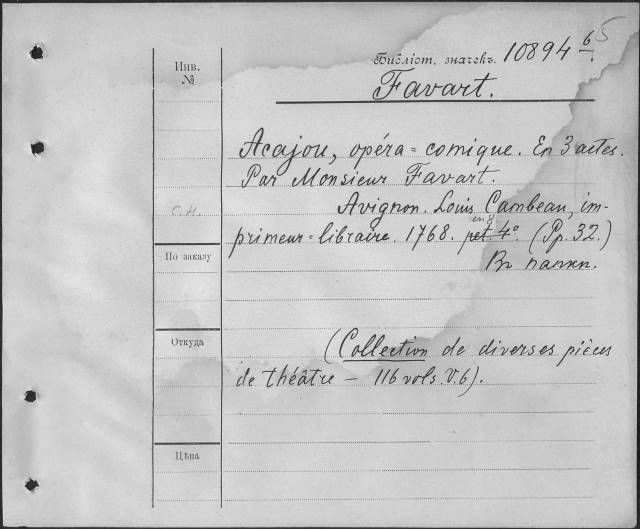 5
Инв.
№
Библіот. значекъ. 10894 6.
Favart.
Acajou, opéra=comique. En 3 actes.
Par Monsieur Favart.
Avignon. Louis Cambeau, im-
с.н.
en 8
primeur=libraire. 1768. pet. 4°. (Pp. 32.)
По заказу
Въ папкѣ.
Откуда
(Collection de diverses pièces
de théâtre – 116 vols. V. 6).
Цѣна